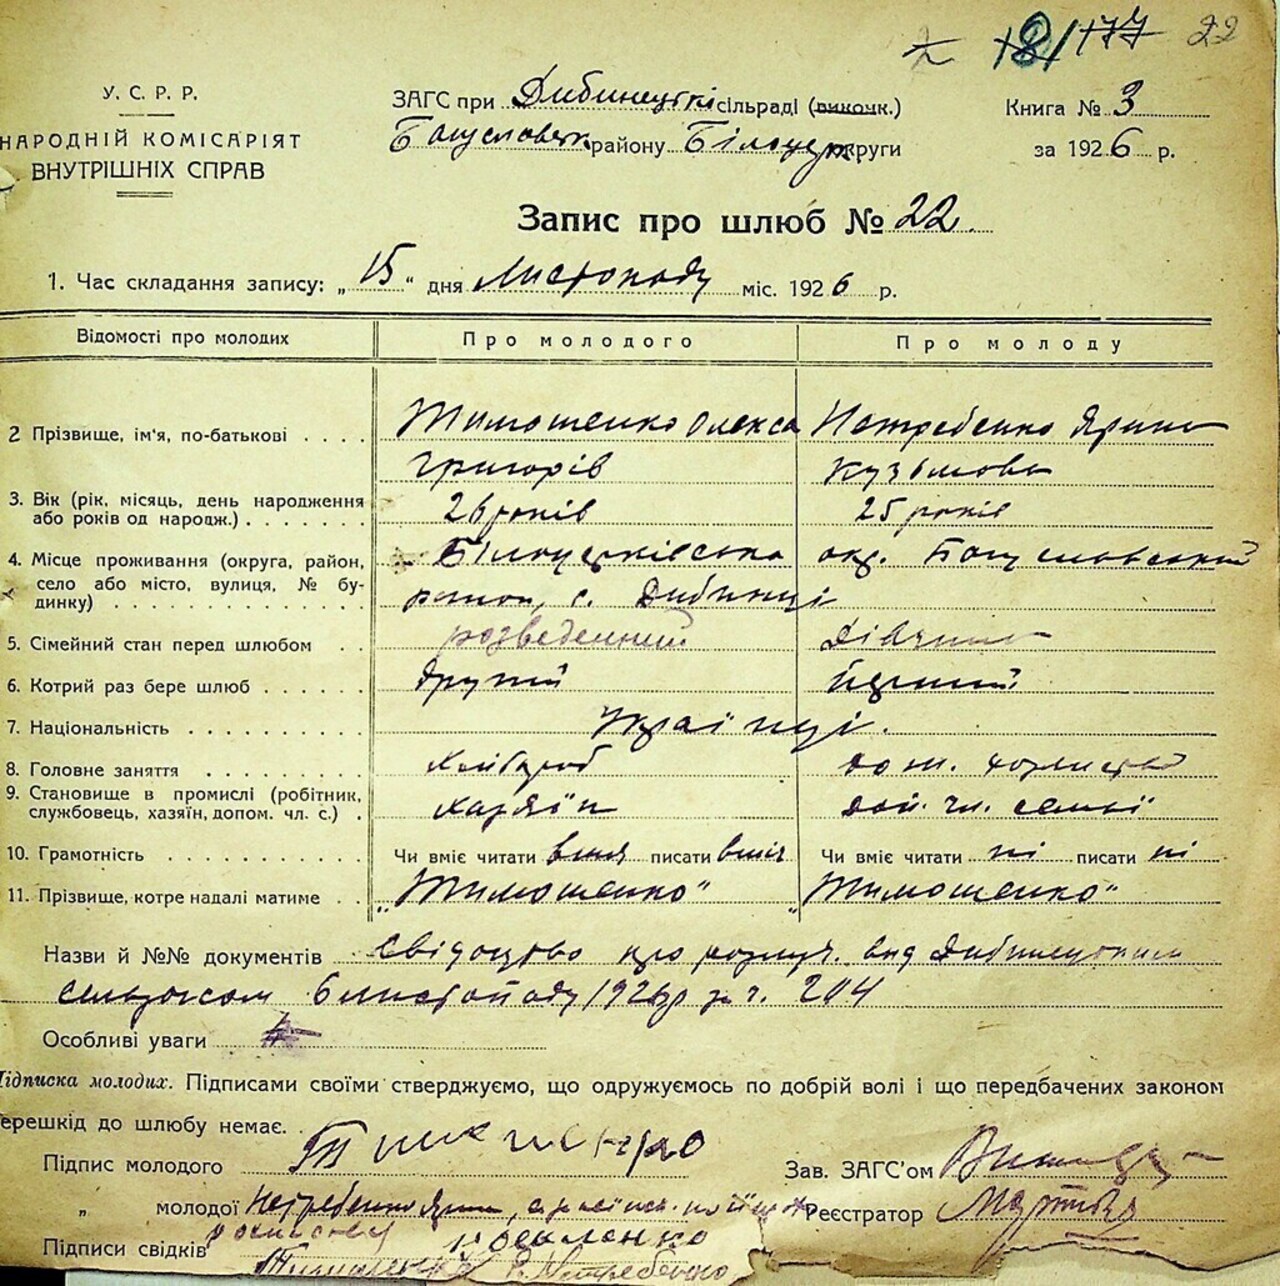 18/177 22
У. С. Р. Р.
НАРОДНІЙ КОМІСАРІЯТ
ВНУТРІШНІХ СПРАВ
ЗАГС при Дибинецькі сільраді (виконк.)
Богуславськ району Білоцерк округи
Книга № 3
за 1926 р.
Запис про шлюб № 22.
1. Час складання запису: „15“ дня Листопаду міс. 1926 р.
Відомості про молодих Про молодого Про молоду
2 Прізвище, ім'я, по-батькові . . . . Тимошенко Олекса Нетребенко Ярина
Григорів Кузьмова
3. Вік (рік, місяць, день народження 26 років 25 років
або років од народж.) . . . . . . .
4. Місце проживання (округа, район, Білоцерківська окр. Богуславський
село або місто, вулиця, № бу- район, с. Дибинці
динку) . . . . . . . . . . . . . .
5. Сімейний стан перед шлюбом . . розведений дівчина
6. Котрий раз бере шлюб . . . . . . другий перший
7. Національність . . . . . . . . . Українці.
8. Головне заняття . . . . . . . . хлібороб дом.
9. Становище в промислі (робітник, хазяїн чл. семьї
службовець, хазяїн, допом. чл. с.) .
10. Грамотність . . . . . . . . . . Чи вміє читати вміє писати вміє Чи вміє читати ні писати ні
11. Прізвище, котре надалі матиме . . „Тимошенко“ „Тимошенко“
Назви й №№ документів Свідоцтво про розлуч. від Дибинецьким
сельзагсом 6 листопаду 1926 р за ч. 204
Особливі уваги
Підписка молодих. Підписами своїми стверджуємо, що одружуємось по добрій волі і що передбачених законом
перешкід до шлюбу немає. .
Підпис молодого Тимошенко
Зав. ЗАГС'ом
„ молодої Нетребенко Ярина,
Реєстратор
Підписи свідків
Тимошенко Нетребенко